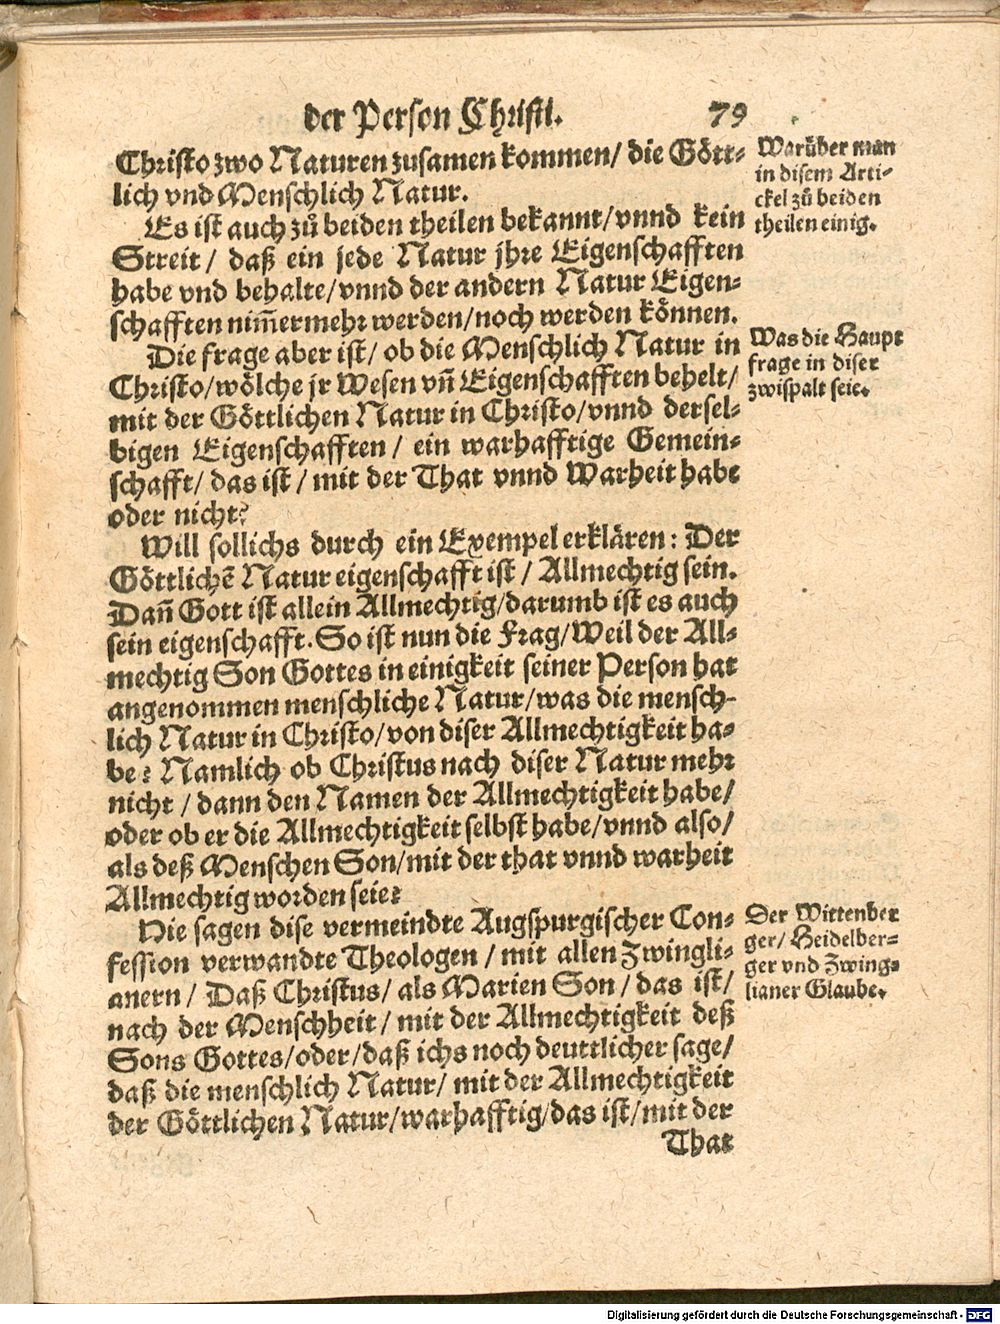 der Person Christi. 79
Christo zwo Naturen zusamen kommen/ die Gött-
lich vnd Menschlich Natur.
Es ist auch zů beiden theilen bekannt/ vnnd kein
Streit/ daß ein jede Natur jhre Eigenschafften
habe vnd behalte/ vnnd der andern Natur Eigen-
schafften nim̃ermehr werden/ noch werden können.
Die frage aber ist/ ob die Menschlich Natur in
Christo/ wölche jr Wesen vñ Eigenschafften behelt/
mit der Göttlichen Natur in Christo/ vnnd dersel-
bigen Eigenschafften/ ein warhafftige Gemein-
schafft/ das ist/ mit der That vnnd Warheit habe
oder nicht?
Will sollichs durch ein Exempel erklären: Der
Göttlichẽ Natur eigenschafft ist/ Allmechtig sein.
Dañ Gott ist allein Allmechtig/ darumb ist es auch
sein eigenschafft. So ist nun die Frag/ Weil der All-
mechtig Son Gottes in einigkeit seiner Person hat
angenommen menschliche Natur/ was die mensch-
lich Natur in Christo/ von diser Allmechtigkeit ha-
be? Namlich ob Christus nach diser Natur mehr
nicht/ dann den Namen der Allmechtigkeit habe/
oder ob er die Allmechtigkeit selbst habe/ vnnd also/
als deß Menschen Son/ mit der that vnnd warheit
Allmechtig worden seie?
Hie sagen dise vermeindte Augspurgischer Con-
fession verwandte Theologen/ mit allen Zwingli-
anern/ Daß Christus/ als Marien Son/ das ist/
nach der Menschheit/ mit der Allmechtigkeit deß
Sons Gottes/ oder/ daß ichs noch deuttlicher sage/
daß die menschlich Natur/ mit der Allmechtigkeit
der Göttlichen Natur/ warhafftig/ das ist/ mit der
That
Warüber man
in disem Arti-
ckel zů beiden
theilen einig.
Was die Haupt
frage in diser
zwispalt seie.
Der Wittenber
ger/ Heidelber-
ger vnd Zwing-
lianer Glaube.
Digitalisierung gefördert durch die Deutsche Forschungsgemeinschaft - DFG